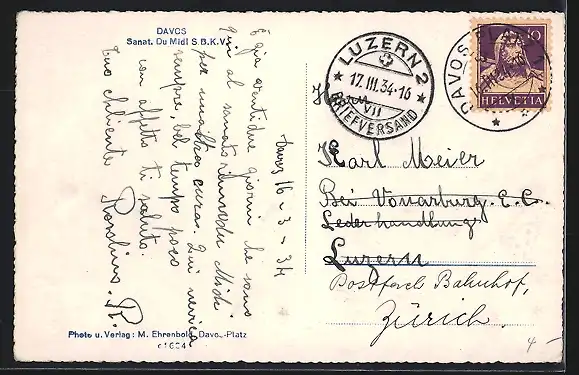 DAVOS
Sanat. Du Midi S.B.K.V.
Davos 16-3-34
È già quindici giorni che sono
qui al sanatorium du Midi
per una altra cura. Qui nevica
sempre, bel tempo poco
con affetto ti saluto.
tuo
Photo u. Verlag: M. Ehrenbold, Davos-Platz
c1604
LUZERN 2
17.III.34-16
VII
BRIEFVERSAND
DAVOS
10
HELVETIA
Herrn
Karl Meier
Bei Vonarburg E. C.
Lederhandlung
Luzern
Postfach Bahnhof,
Zürich.
4-